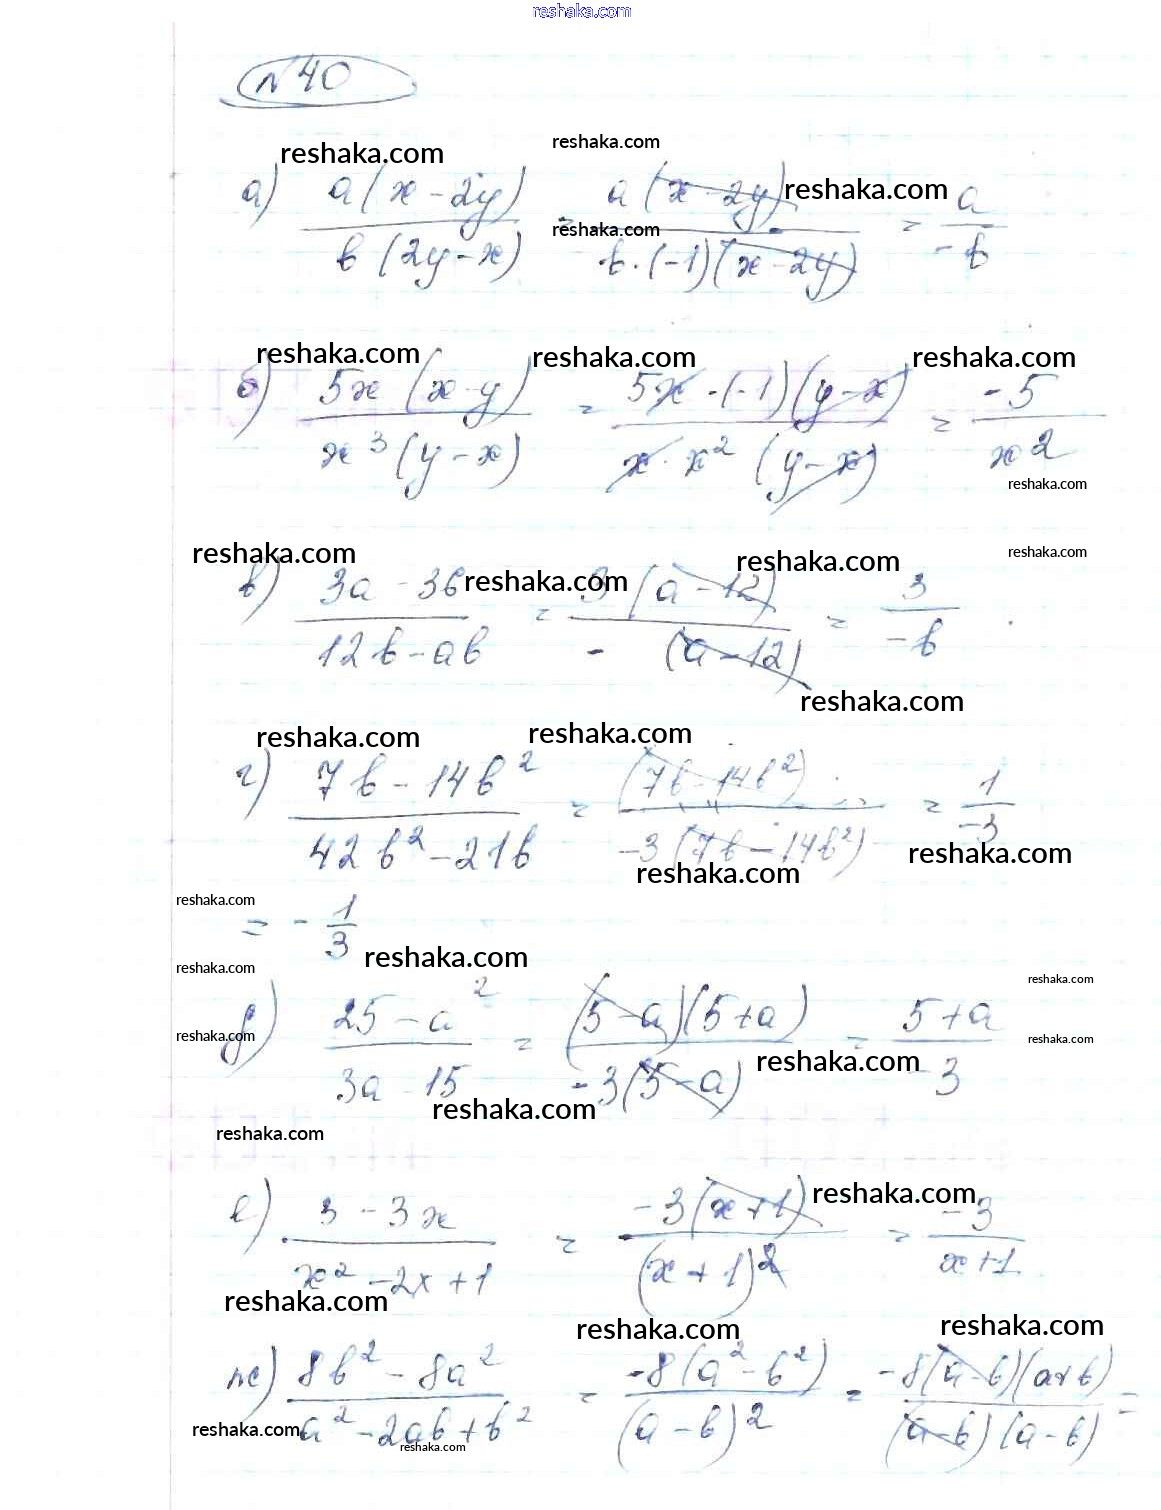 reshaka.com
№ 40
reshaka.com reshaka.com
а) a(x-2y) / b(2y-x) = a(x-2y) / b·(-1)(x-2y) = a / -b
reshaka.com reshaka.com
reshaka.com reshaka.com reshaka.com
б) 5x(x-y) / x³(y-x) = 5x·(-1)(y-x) / x·x²(y-x) = -5 / x²
reshaka.com
reshaka.com reshaka.com reshaka.com
в) 3a-36 / 12b-ab = 3(a-12) / - (a-12) = 3 / -b
reshaka.com reshaka.com
reshaka.com reshaka.com
г) 7b-14b² / 42b²-21b = (7b-14b²) / -3(7b-14b²) = 1 / -3
reshaka.com reshaka.com
reshaka.com
= - 1/3
reshaka.com
reshaka.com reshaka.com
д) 25-a² / 3a-15 = (5-a)(5+a) / -3(5-a) = 5+a / -3
reshaka.com reshaka.com
reshaka.com reshaka.com
reshaka.com
е) 3-3x / x²-2x+1 = -3(x+1) / (x+1)² = -3 / x+1
reshaka.com
reshaka.com reshaka.com reshaka.com
ж) 8b²-8a² / a²-2ab+b² = -8(a²-b²) / (a-b)² = -8(a-b)(a+b) / (a-b)(a-b) =
reshaka.com reshaka.com